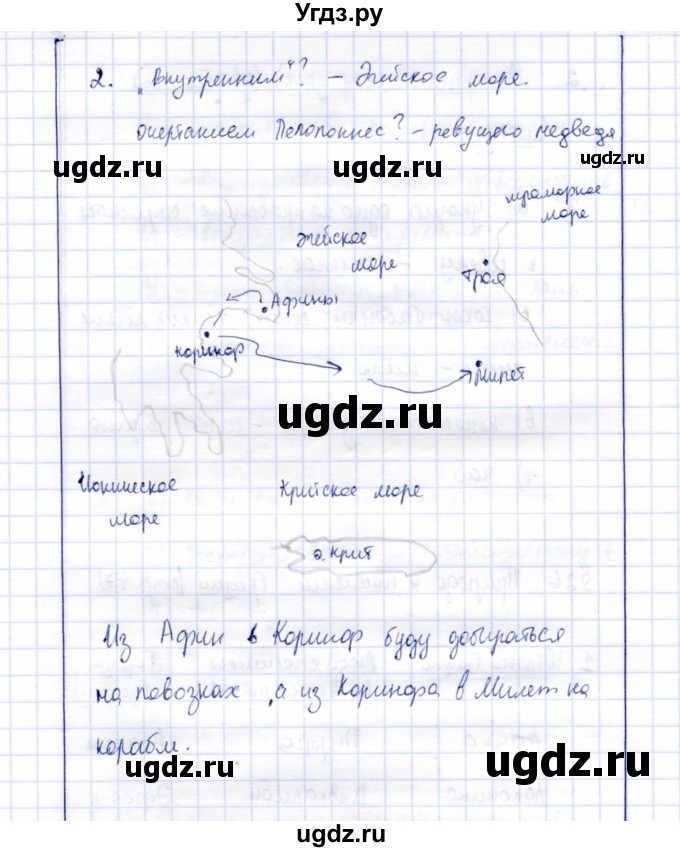 Угдз.ру
2. „Внутренним"? – Эгейское море.
очертанием Пелопоннес? – ревущего медведя
ugdz.ru ugdz.ru ugdz.ru
мраморное
море
эгейское
море
Троя
Афины
коринф
Милет
ugdz.ru
Ионическое
море
Критское море
о. Крит
Из Афин в Коринф буду добираться
на повозках, а из Коринфа в Милет на
корабл.
ugdz.ru ugdz.ru
ugdz.ru